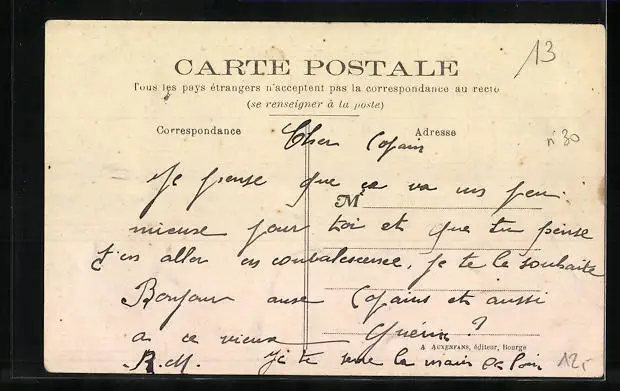 13
CARTE POSTALE
Tous les pays étrangers n'acceptent pas la correspondance au recto
(se renseigner à la poste)
Correspondance
Adresse
n° 30
Cher Copain
Je pense que ça va un peu
M
mieuse pour toi et que tu pense
t'en aller en convalescence, je te le souhaite
Bonjour ause Copains et aussi
a ce vieux Guérin ?
A AUXENFANS, éditeur, Bourge
R.M. Je te serre la main de loin
12,-